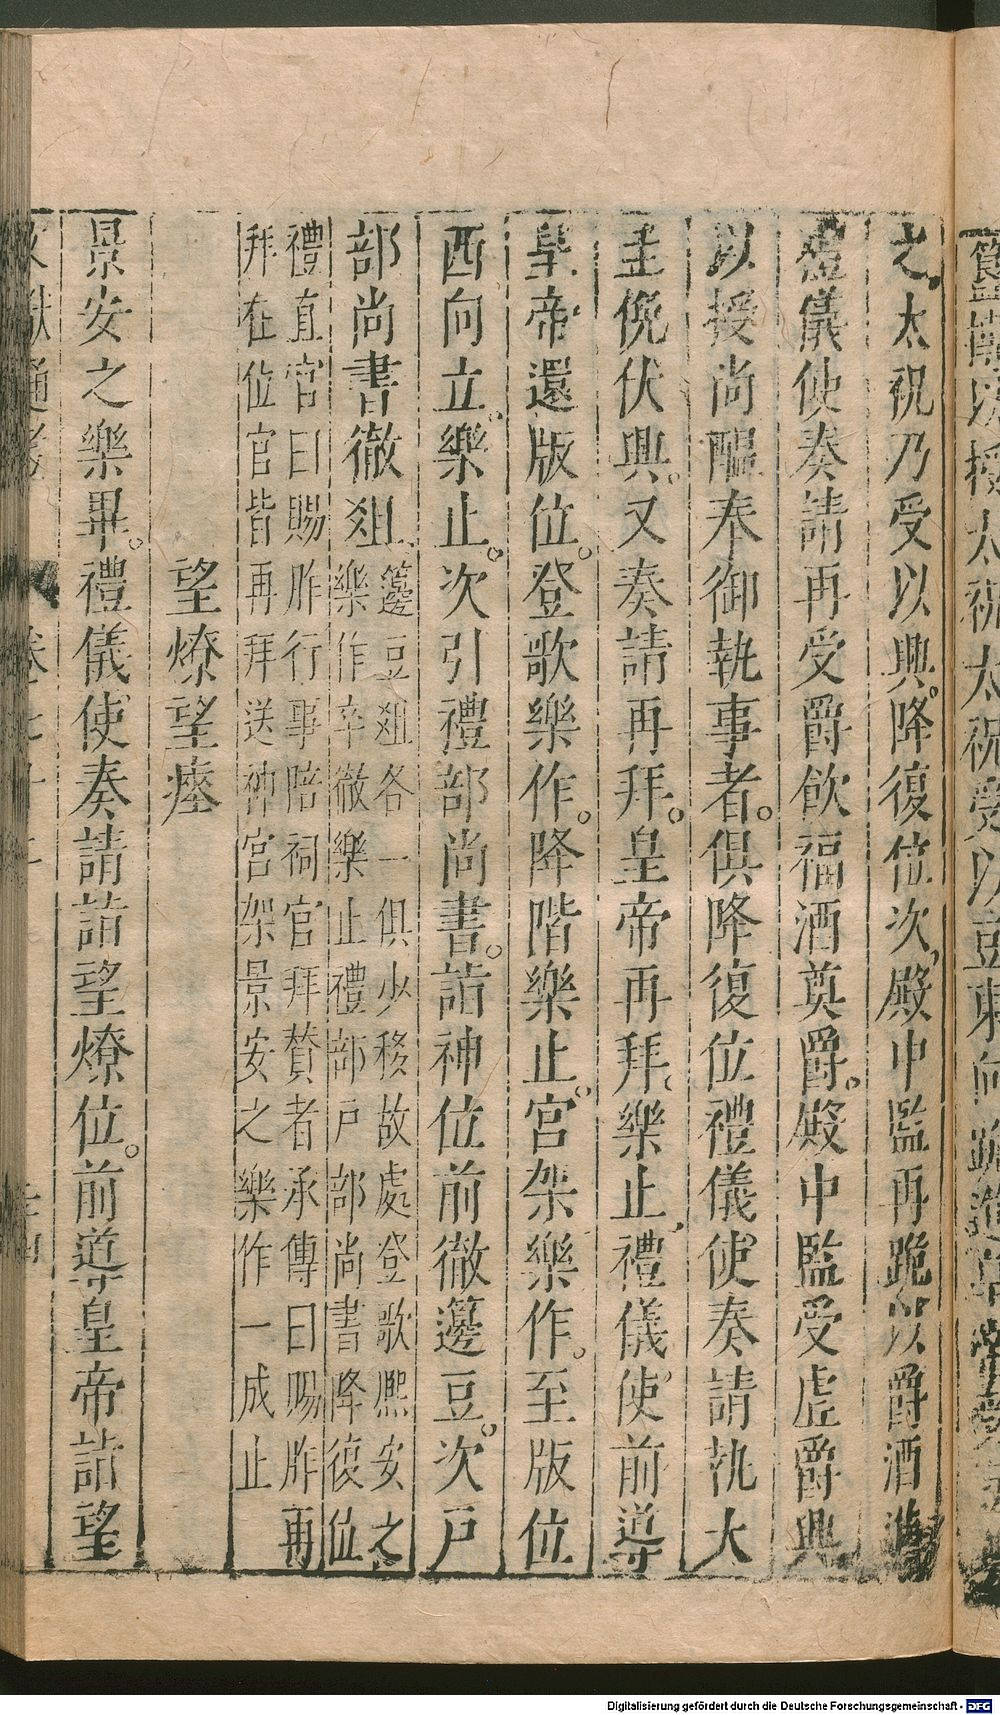 之太祝乃受以興降復位次殿中監再跪以爵酒進
禮儀使奏請再受爵飲福酒奠爵殿中監受虛爵興
以授尚醞奉御執事者俱降復位禮儀使奏請執大
圭俛伏興又奏請再拜皇帝再拜樂止禮儀使前導
皇帝還版位登歌樂作降階樂止宮架樂作至版位
西向立樂止次引禮部尚書詣神位前徹籩豆次戶
部尚書徹俎籩豆俎各一俱少移故處登歌熙安之
樂作卒徹樂止禮部戶部尚書降復位
禮直官曰賜胙行事陪祠官拜贊者承傳曰賜胙再
拜在位官皆再拜送神宮架景安之樂作一成止
望燎望瘞
景安之樂畢禮儀使奏請詣望燎位前導皇帝詣望
文獻通考 卷七十二
以授太祝太祝受以豆東向跪進皇帝
Digitalisierung gefördert durch die Deutsche Forschungsgemeinschaft - DFG